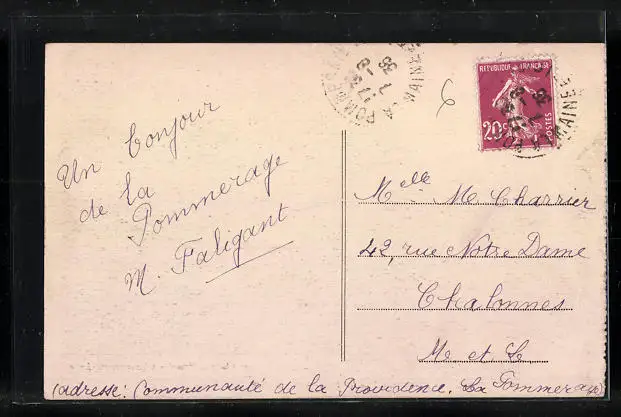 Un bonjour
de la
Pommeraye
M. Faligant
RÉPUBLIQUE FRANÇAISE
20c
POSTES
MAINE
Melle M Charrier
42, rue Notre Dame
Chalonnes
M. et L.
(adresse: Communauté de la Providence. La Pommeraye)